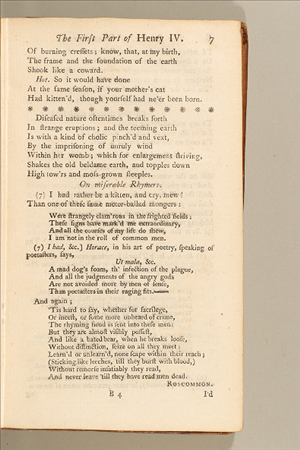 The First Part of Henry IV. 7
Of burning cressets; know, that, at my birth,
The frame and the foundation of the earth
Shook like a coward.
Hot. So it would have done
At the same season, if your mother's cat
Had kitten'd, though yourself had ne'er been born.
* * * * * * * * * * * * *
Diseased nature oftentimes breaks forth
In strange eruptions; and the teeming earth
Is with a kind of cholic pinch'd and vext,
By the imprisoning of unruly wind
Within her womb; which for enlargement striving,
Shakes the old beldame earth, and topples down
High tow'rs and moss-grown steeples.
On miserable Rhymers.
(7) I had rather be a kitten, and cry, mew!
Than one of these same meter-ballad mongers:
Were strangely clam'rous in the frighted fields;
These signs have mark'd me extraordinary,
And all the courses of my life do shew,
I am not in the roll of common men.
(7) I had, &c.) Horace, in his art of poetry, speaking of
poetasters, says,
Ut mala, &c.
A mad dog's foam, th' infection of the plague,
And all the judgments of the angry gods
Are not avoided more by men of sense,
Than poetasters in their raging fits.
And again;
'Tis hard to say, whether for sacrilege,
Or incest, or some more unheard of crime,
The rhyming fiend is sent into these men:
But they are almost visibly possest,
And like a baited bear, when he breaks loose,
Without distinction, seize on all they meet:
Learn'd or unlearn'd, none scape within their reach;
(Sticking like leeches, till they burst with blood,)
Without remorse insatiably they read,
And never leave 'till they have read men dead.
ROSCOMMON.
B 4 I'd